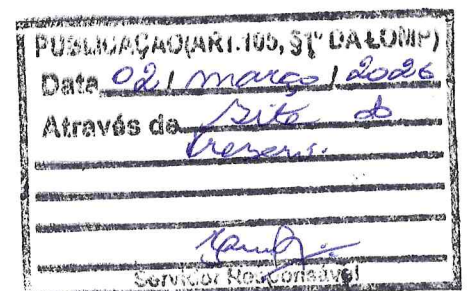 PUBLICAÇÃO(ART.105, §1º DA LOMP)
Data 02 / março / 2026
Através da Site do
Servidor Responsável